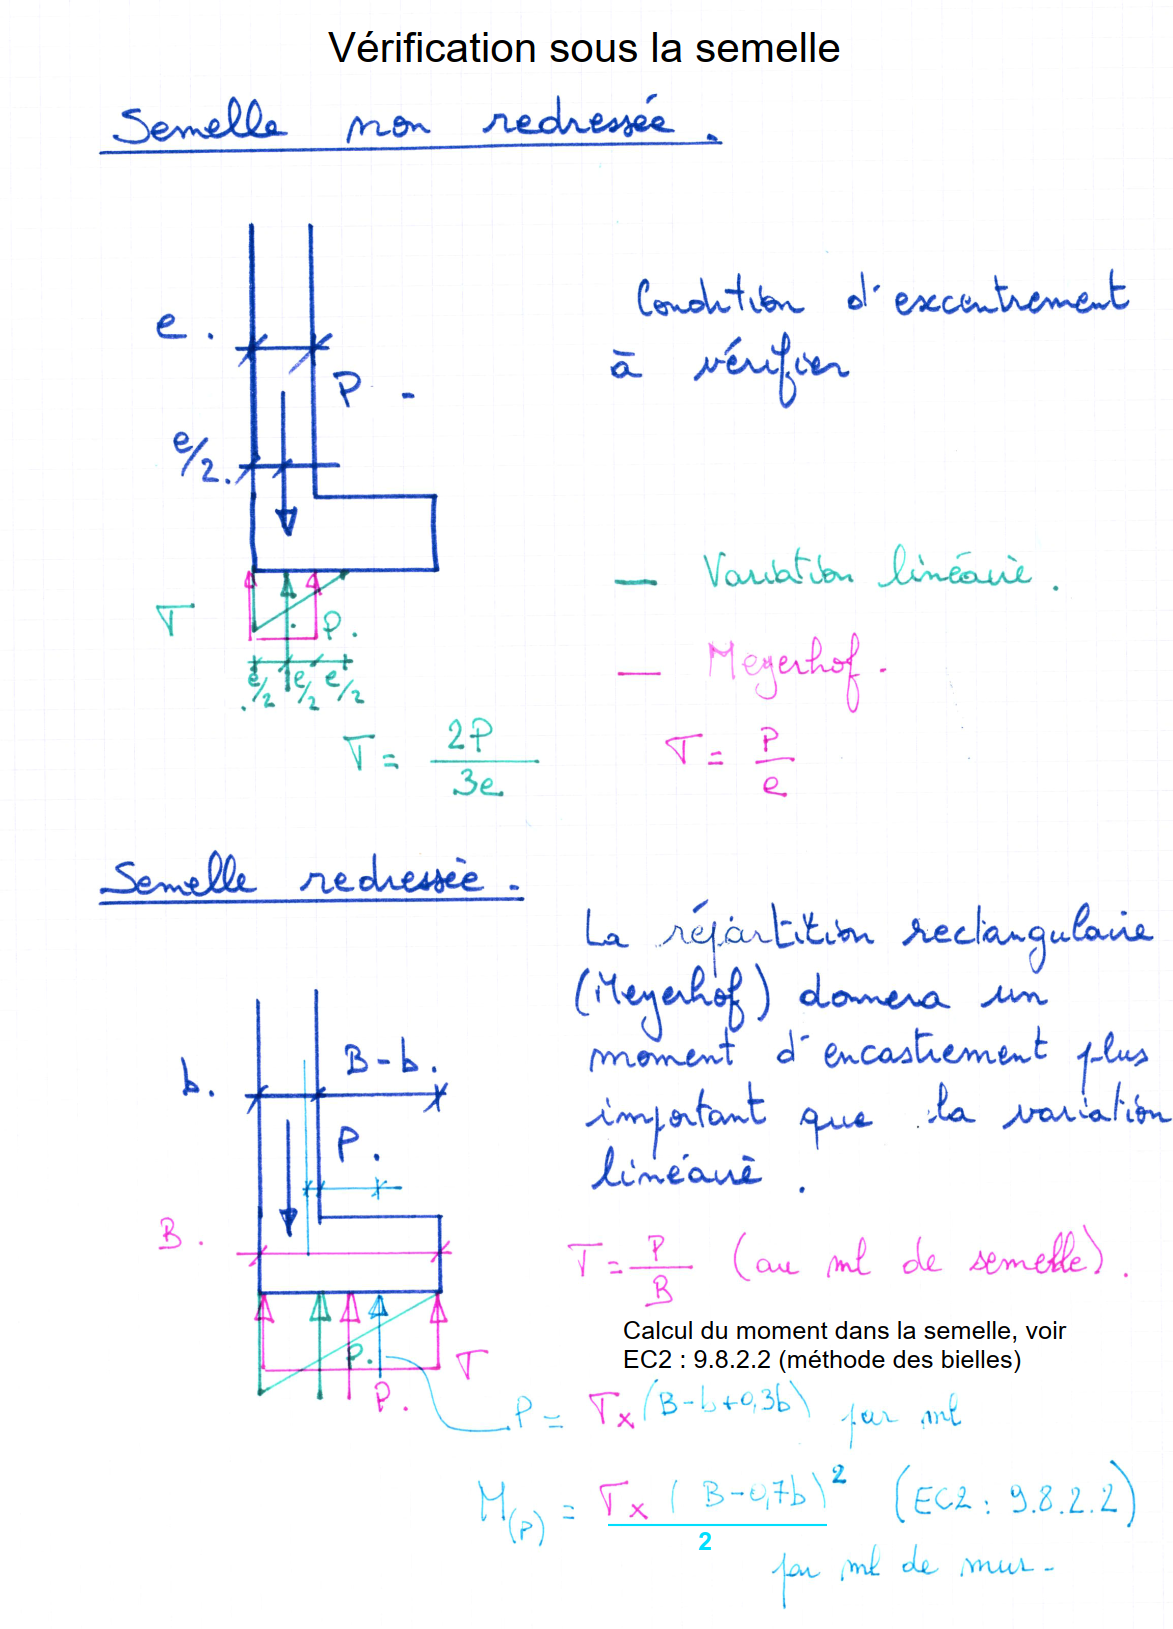 Vérification sous la semelle
Semelle non redressée.
e.
Condition d'excentrement
à vérifier
P
e/2.
— Variation linéaire.
σ
P.
— Meyerhof.
e/2 e/2 e/2
σ = 2P / 3e
σ = P / e
Semelle redressée.
La répartition rectangulaire
(Meyerhof) donnera un
moment d'encastrement plus
important que la variation
linéaire.
b.
B-b.
P.
B.
σ = P / B (au ml de semelle).
Calcul du moment dans la semelle, voir
EC2 : 9.8.2.2 (méthode des bielles)
P.
σ
P.
P = σ x (B-b+0,3b) par ml
M(P) = σ x (B-0,7b)² / 2 (EC2 : 9.8.2.2)
par ml de mur-